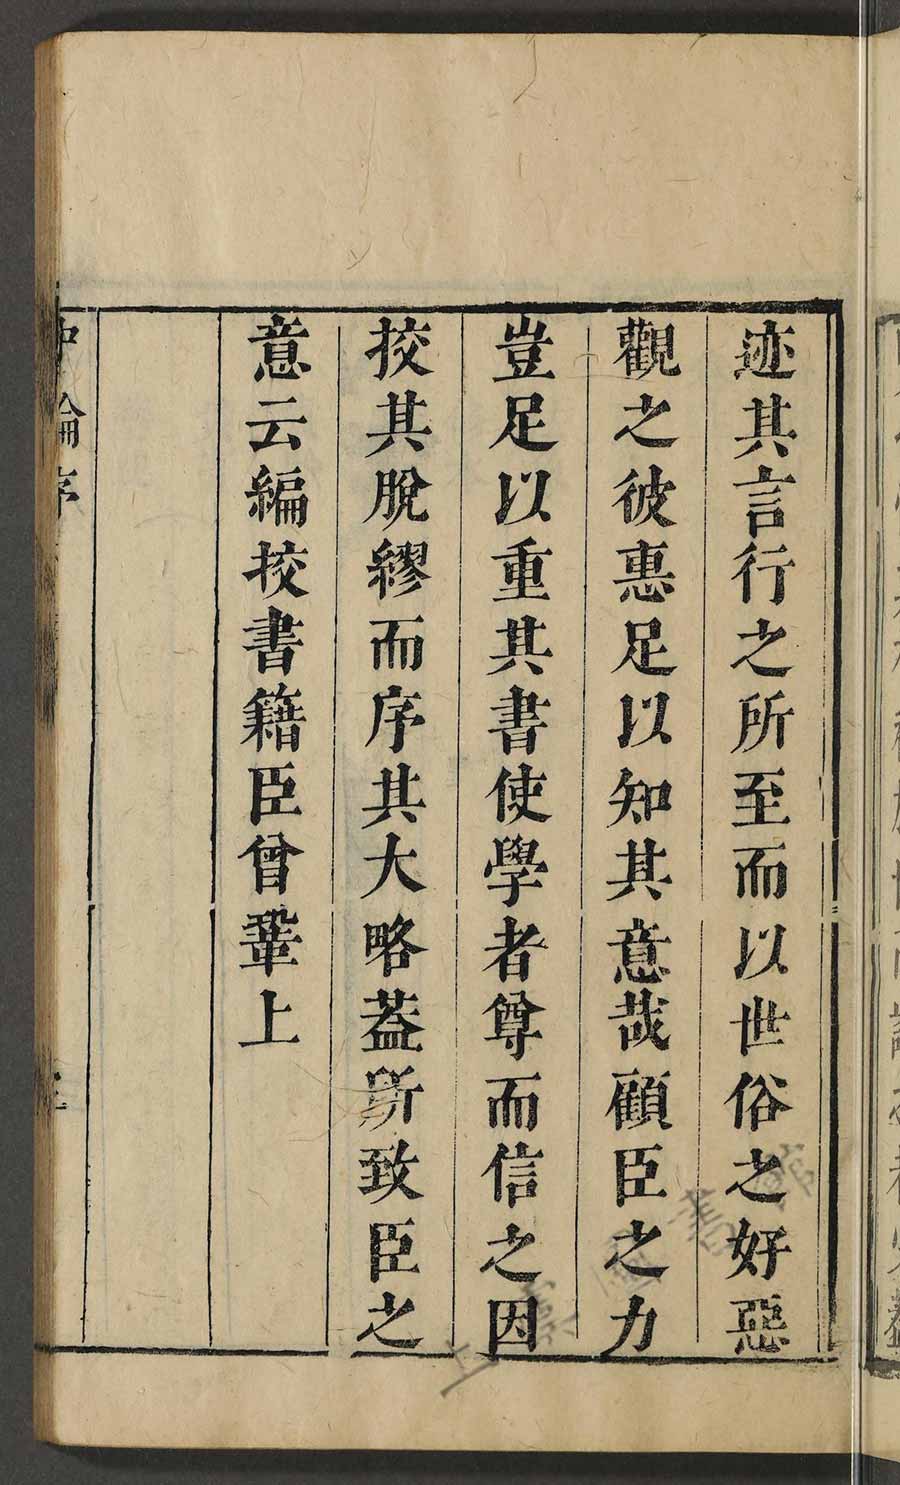 迹其言行之所至而以世俗之好惡
觀之彼惡足以知其意哉顧臣之力
豈足以重其書使學者尊而信之因
挍其脫繆而序其大略蓋所致臣之
意云編挍書籍臣曾鞏上
中論序